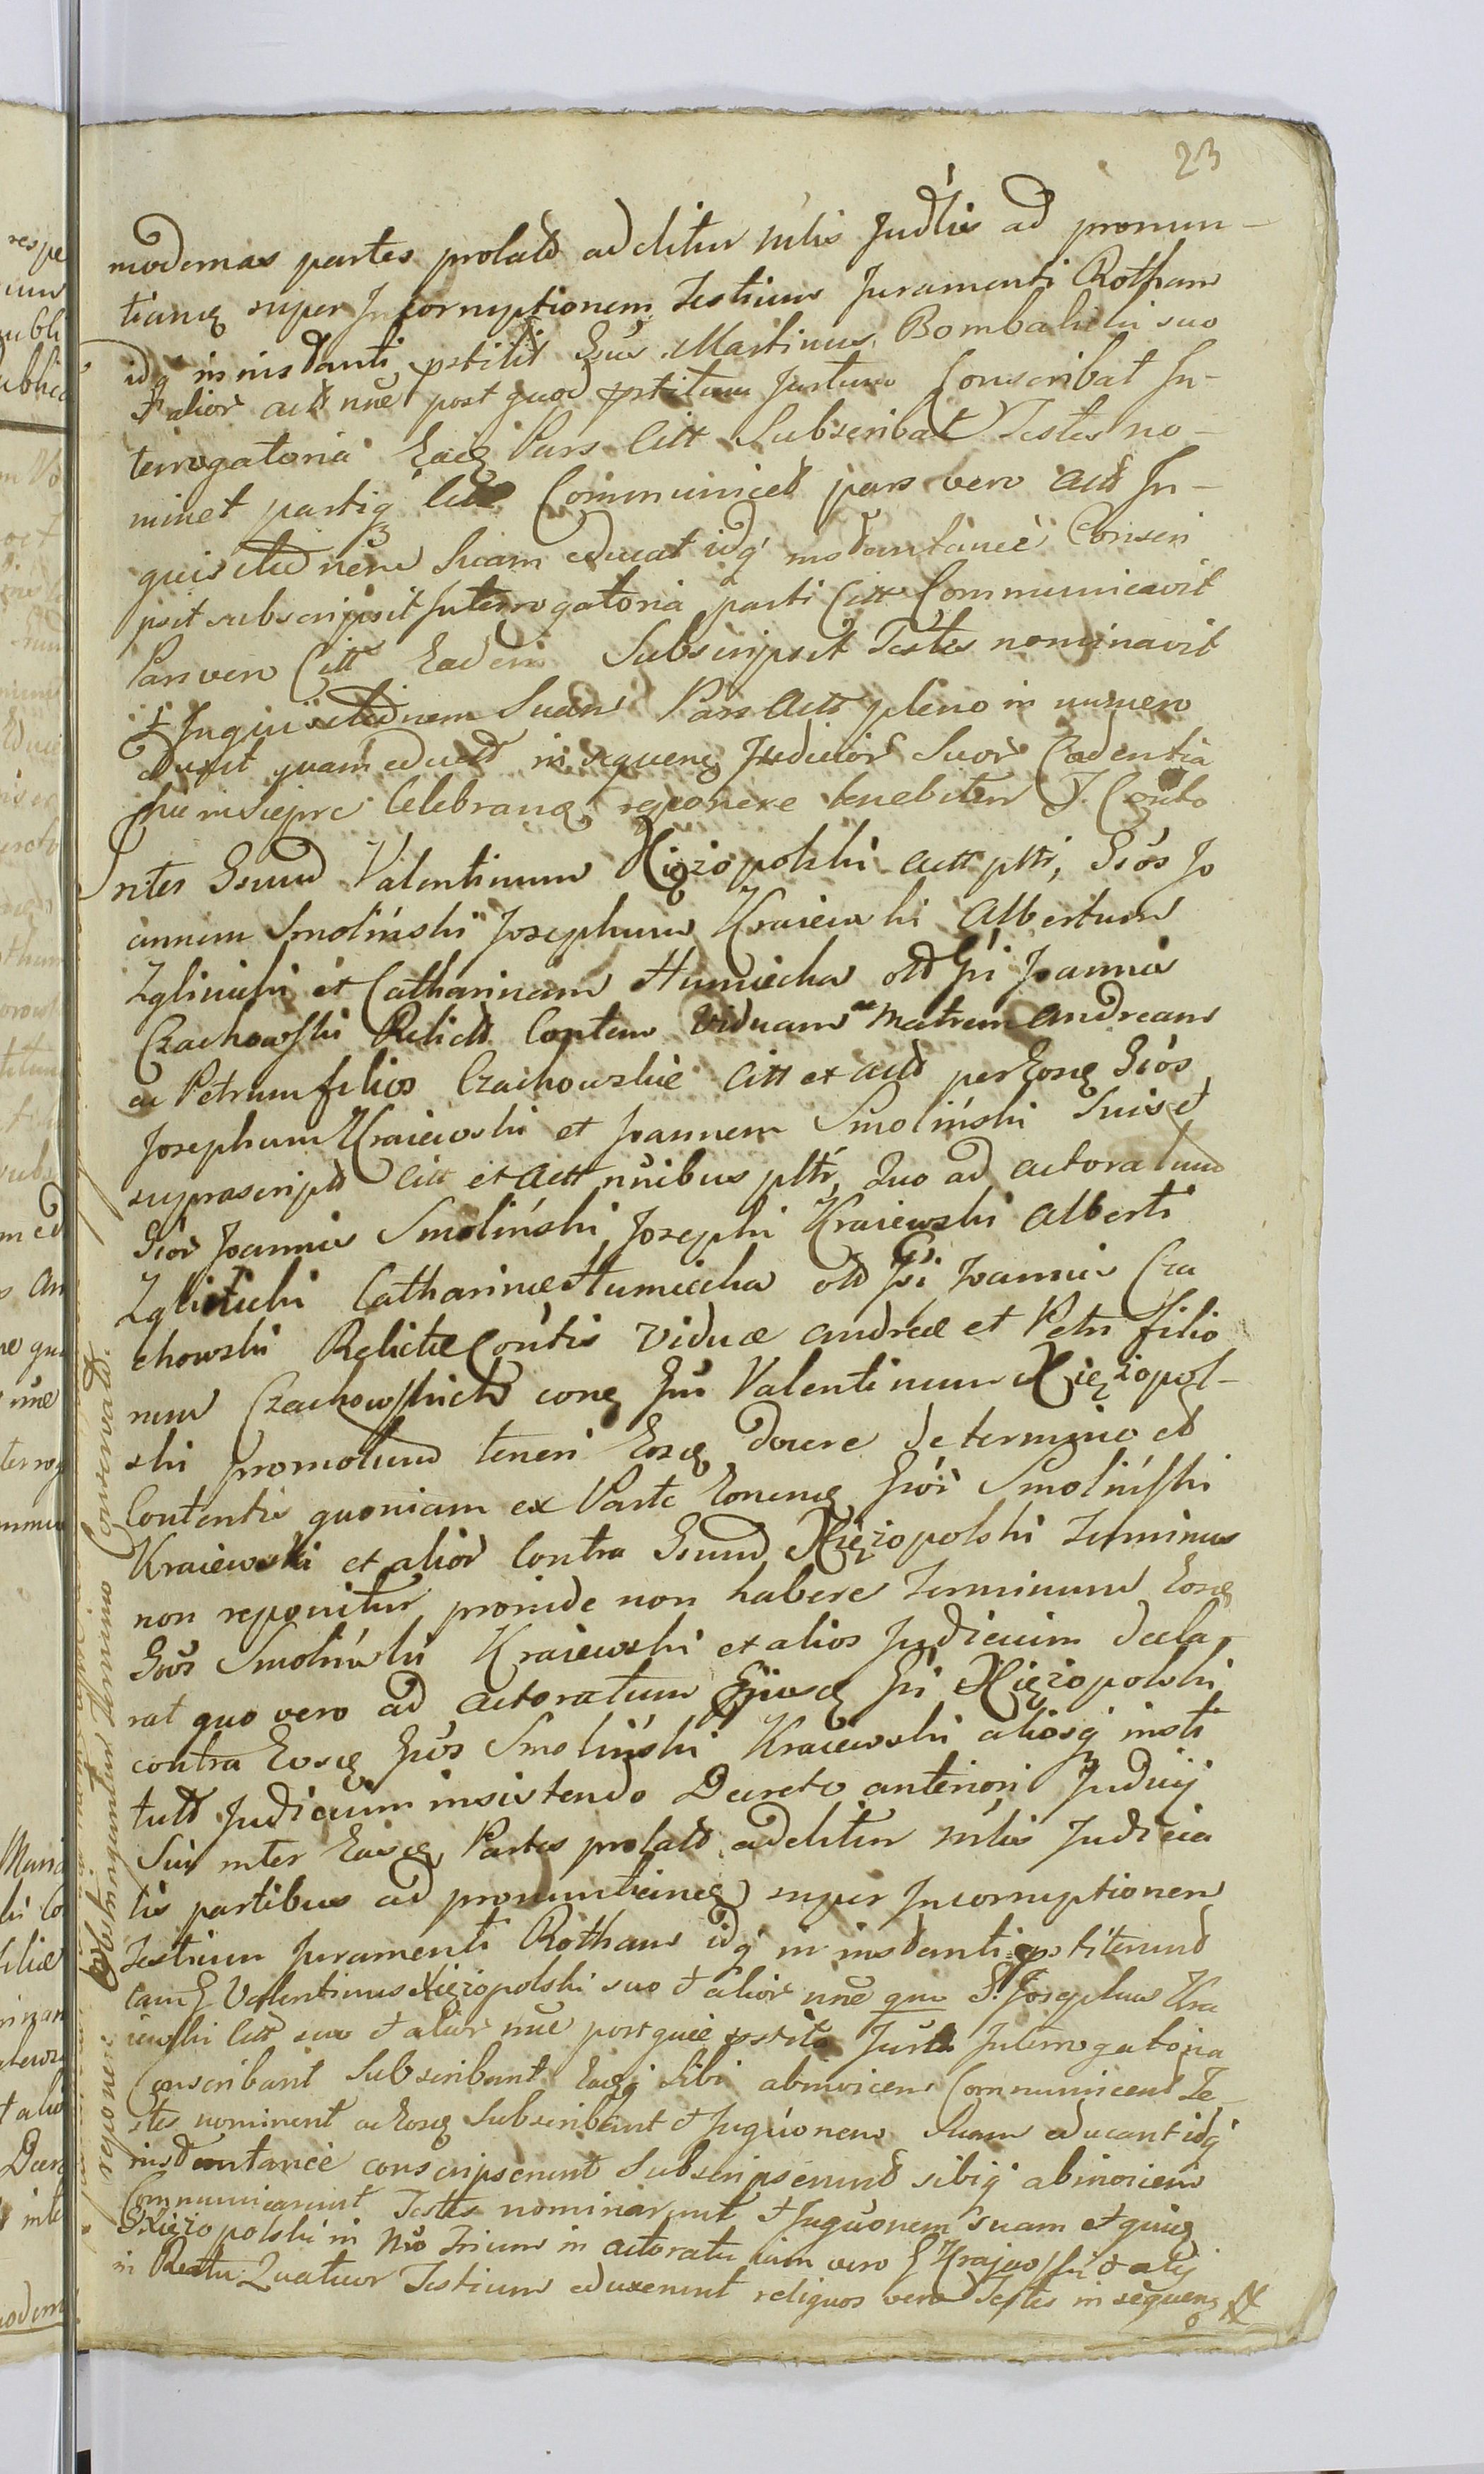 23
modernas partes prolatt additur ntlis Judlis ad pronun-
tianq super Incorruptionem Testium Juramenti Rotham
idq instanti pstitit Gsus Martinus Bombalicki suo
et alior actt nne post quod pstitum Jurtum Conscribat In-
terrogatoria Eadq Pars Citt Subscribat Testes no-
minet partiq Citt Communicet pars vero actt In-
quis suam educat idq instantanee Conscri
psit subscripsit Interrogatoria parti Citt Communicavit
Pars vero Citt Eadem Subscripsit Testes nominavit
et Suam Pars Actt pleno in numero
eduxit quam eductt in sequenq Judicior Suor Cadentia
hic in Sieprc Celebranq reponere tenebitur T. Conto
Inter Gsum Valentinum Xięzopolski actt pltt, Gsos Jo
annem Smoliński Josephum Kraiewski Albertum
Zglinicki et Catharinam Humiecka ott Gsi Joannis
Czachowski Relictt Contem Viduam ac Matrem Andream
ac Petrum filios Czachowskie Citt et actt per Eosq Gsos
Josephum Kraiewski et Joannem Smoliński Suis et
suprascriptt Citt et Actt nnibus pltt, Quo ad actoratum
Gsor Joannis Smoliński Josephi Kraiewski Alberti
Zglinicki Catharinæ Humiecka ott Gsi Joannis Cza
chowski Relictæ Contis Viduæ Andreæ et Petri filio
rum Czachowskich conq Gsu Valentinum Xięzopol-
ski promotum teneri Eosq docere de termino et
Contentis quoniam ex Parte Eorunq Gsor Smoliński
Kraiewski et alior Contra Gsum Xięzopolski Terminus
non reponitur proinde non habere Terminum Eosq
Gsos Smoliński Kraiewski et alios Judicium decla-
rat quo vero ad actoratum Ejusq Gsi Xięzopolski
contra Eosq Gsos Smoliński Kraiewski aliosq insti
tutt Judicium insistendo Decreto anteriori Judicij
Sui inter Easq Partes prolatt additur ntlis Judicia
lis partibus ad pronuntianq super Incorruptionem
Testium Juramenti Rotham idq in instanti pstiterunt
tam G Valentinus Xięzopolski suo et alior nne qm G. Josephus Kra
iewski Citt suo et alior nne post quæ pstita Jurta Interrogatoria
Conscribant Subscribant Eaq Sibi abinvicem Communicent Te-
stes nominent ac Eosq Subscribant et Inquionem Suam educant idq
instantanee conscripserunt Subscripserunt sibiq abinvicem
Communicarunt Testes nominarunt et Inquionem suam et quiq
G Xięzopolski in Nro Trium in actoratu iam vero G Krajewski et alij
in Reatu Quatuor Testium eduxerunt reliquos vero Testes in sequenq
reponere obstringuntur Termino Conservatt.